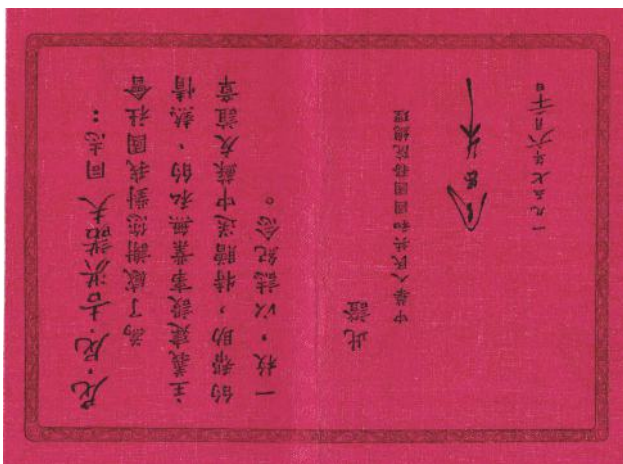 尼·尼·吉洪諾夫 同志：
為了感謝您對我國社會
主義建設事業無私的、熱情
的幫助，特贈送中蘇友誼章
一枚，以誌紀念。
此證
中華人民共和國國務院總理
周恩來
一九五七年六月二十日